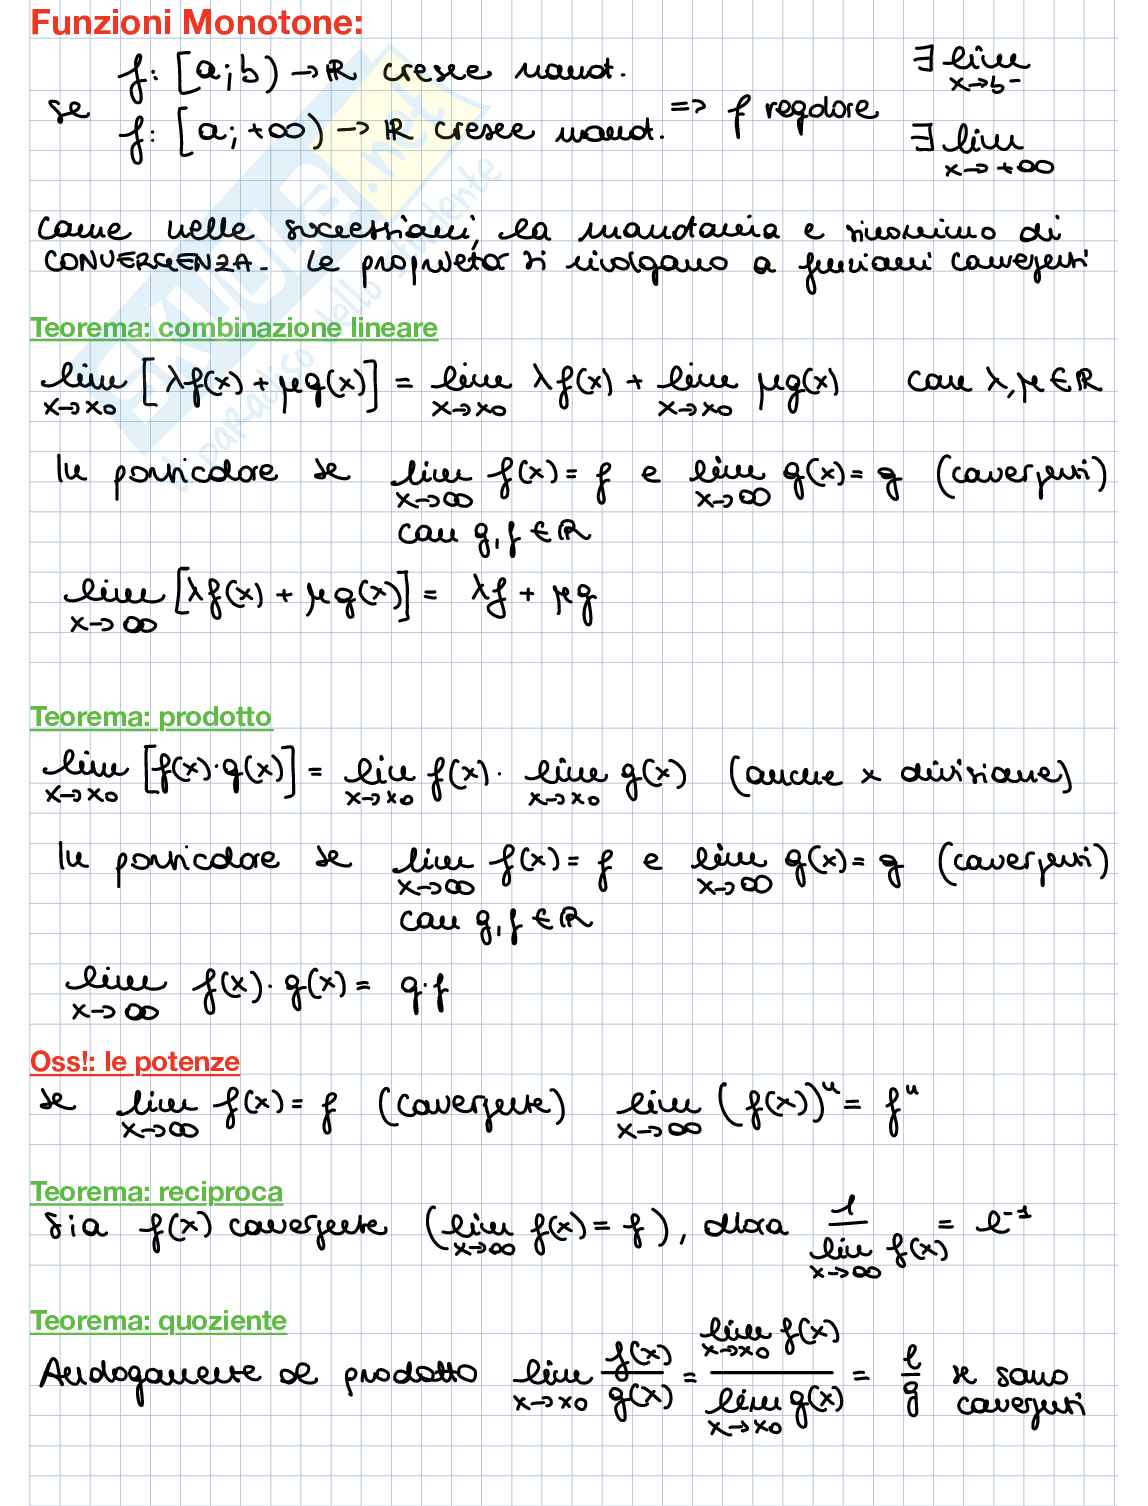 Funzioni Monotone:
f: [a; b) → ℝ cresce monot. ∃ lim x→b⁻
se => f regolare
f: [a; +∞) → ℝ cresce monot. ∃ lim x→+∞
Come nelle successioni, la monotonia è sinonimo di
CONVERGENZA. Le proprietà si rivolgono a funzioni convergenti
Teorema: combinazione lineare
lim x→x₀ [λf(x) + μg(x)] = lim x→x₀ λf(x) + lim x→x₀ μg(x) con λ, μ ∈ ℝ
In particolare se lim x→∞ f(x) = f e lim x→∞ g(x) = g (convergenti)
con g, f ∈ ℝ
lim x→∞ [λf(x) + μg(x)] = λf + μg
Teorema: prodotto
lim x→x₀ [f(x)·g(x)] = lim x→x₀ f(x) · lim x→x₀ g(x) (anche x divisione)
In particolare se lim x→∞ f(x) = f e lim x→∞ g(x) = g (convergenti)
con g, f ∈ ℝ
lim x→∞ f(x)·g(x) = g·f
Oss!: le potenze
se lim x→∞ f(x) = f (convergente) lim x→∞ (f(x))ⁿ = fⁿ
Teorema: reciproca
Sia f(x) convergente (lim x→∞ f(x) = f), allora 1 / lim x→∞ f(x) = l⁻¹
Teorema: quoziente
Analogamente al prodotto lim x→x₀ f(x)/g(x) = lim x→x₀ f(x) / lim x→x₀ g(x) = l/g se sono
convergenti